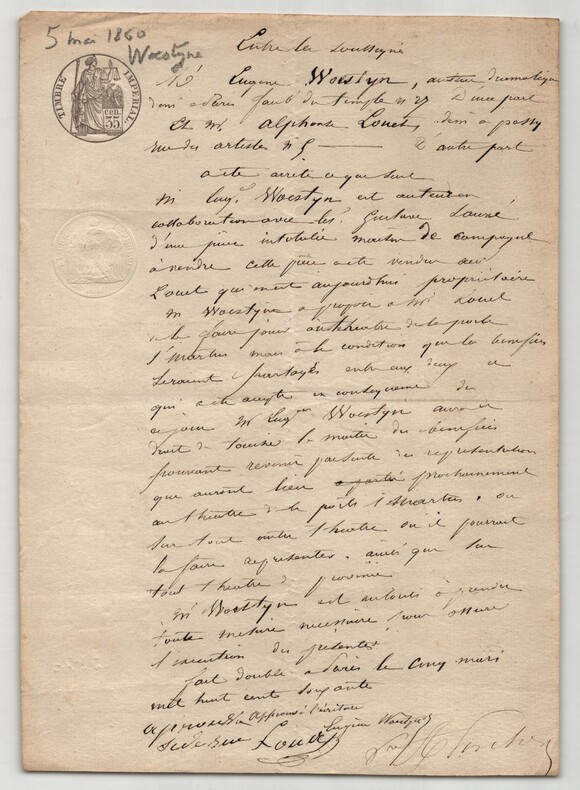 5 mai 1860
Woestyne
TIMBRE IMPERIAL
35 cen.
Entre les soussignés
Mr Eugène Woestyn, auteur dramatique
demt à Paris faubg du temple n 27 D'une part
Et Mr Alphonse Louet demt à passy
rue des artistes n 5 — D'autre part
a été arrêté ce que suit
M Eugne Woestyn est auteur en
collaboration avec Gustave
d'une pièce intitulée de campagne
à vendre cette pièce a été vendue à
Louet qui en est aujourdhui propriétaire
M Woestyn a proposé à Mr Louet
de la faire jouer au théatre de la porte
St Martin mais à la condition que les bénéfices
seraient partagés entre eux deux ce
qui a été accepté en conséquence de
ce jour M Eugne Woestyn aura
droit de toucher la moitié des bénéfices
pouvant revenir par suite des représentations
que auront lieu prochainement
au théatre de la porte St Martin, ou
sur tout autre théatre où il pourrait
la faire représenter, ainsi que sur
tout théatre de province
Mr Woestyn est autorisé à prendre
toute mesure nécessaire pour assurer
l'execution des présentes
fait double à Paris le cinq mai
mil huit cent soixante
approuvé Approuvé l'écriture
Louet Eugène Woestyn